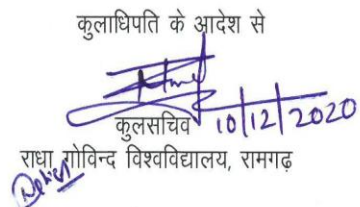 कुलाधिपति के आदेश से
कुलसचिव 10/12/2020
राधा गोविन्द विश्वविद्यालय, रामगढ़